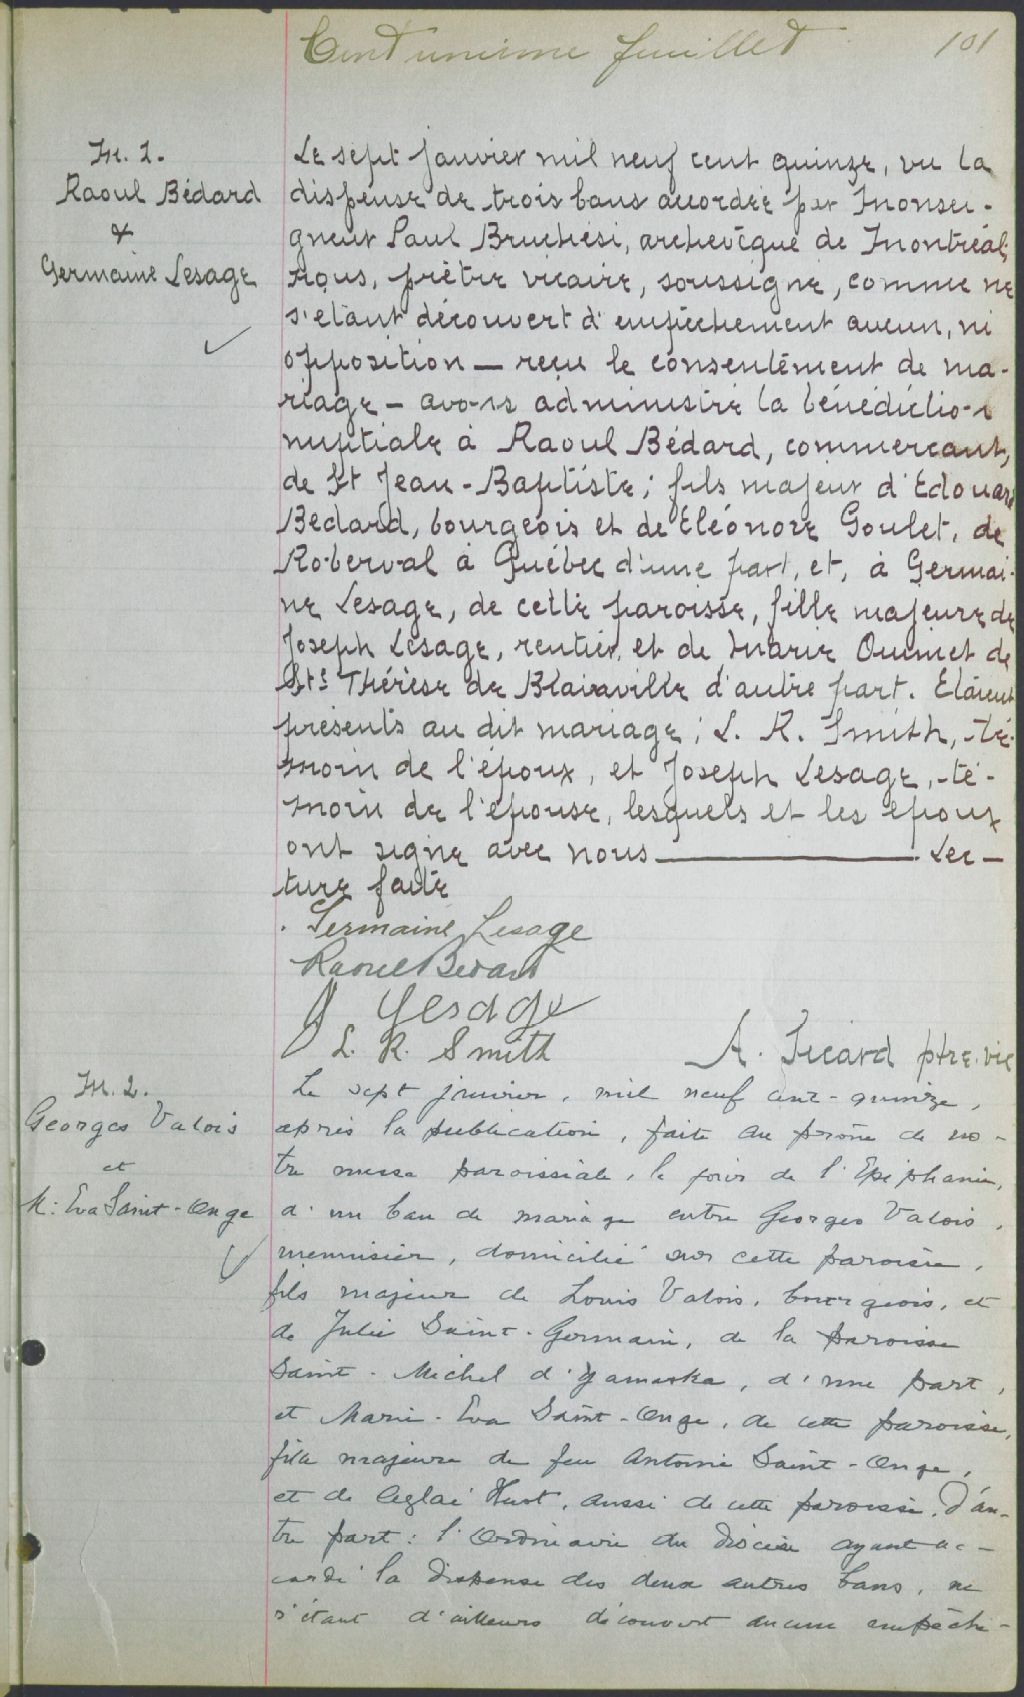 Cent unième feuillet 101
M. 1.
Raoul Bédard
&
Germaine Lesage
Le sept janvier mil neuf cent quinze, vu la
dispense de trois bans accordée par Monsei-
gneur Paul Bruchési, archevêque de Montréal,
nous, prêtre vicaire, soussigné, comme ne
s'étant découvert d'empêchement aucun, ni
opposition — reçu le consentement de ma-
riage — avons administré la bénédiction
nuptiale à Raoul Bédard, commerçant,
de St Jean-Baptiste; fils majeur d'Edouard
Bédard, bourgeois et de Eléonore Goulet, de
Roberval à Québec d'une part, et, à Germai-
ne Lesage, de cette paroisse, fille majeure de
Joseph Lesage, rentier, et de Marie Ouimet de
Ste Thérèse de Blainville d'autre part. Etaient
présents au dit mariage; L. R. Smith, té-
moin de l'époux, et Joseph Lesage, té-
moin de l'épouse, lesquels et les époux
ont signé avec nous — Lec-
ture faite
Germaine Lesage
Raoul Bédard
J Lesage
L. R. Smith
A. Picard ptre. vic
M. 2.
Georges Valois
et
M: Eva Saint-Onge
Le sept janvier, mil neuf cent-quinze,
après la publication, faite au prône de no-
tre messe paroissiale, le jour de l'Epiphanie,
d'un ban de mariage entre Georges Valois,
menuisier, domicilié sur cette paroisse,
fils majeur de Louis Valois, bourgeois, et
de Julie Saint-Germain, de la paroisse
Saint-Michel d'Yamaska, d'une part,
et Marie-Eva Saint-Onge, de cette paroisse,
fille majeure de feu Antoine Saint-Onge,
et de Aglaé Huot, aussi de cette paroisse, d'au-
tre part: l'Ordinaire du diocèse ayant ac-
cordé la dispense des deux autres bans, ne
s'étant d'ailleurs découvert aucun empêche-